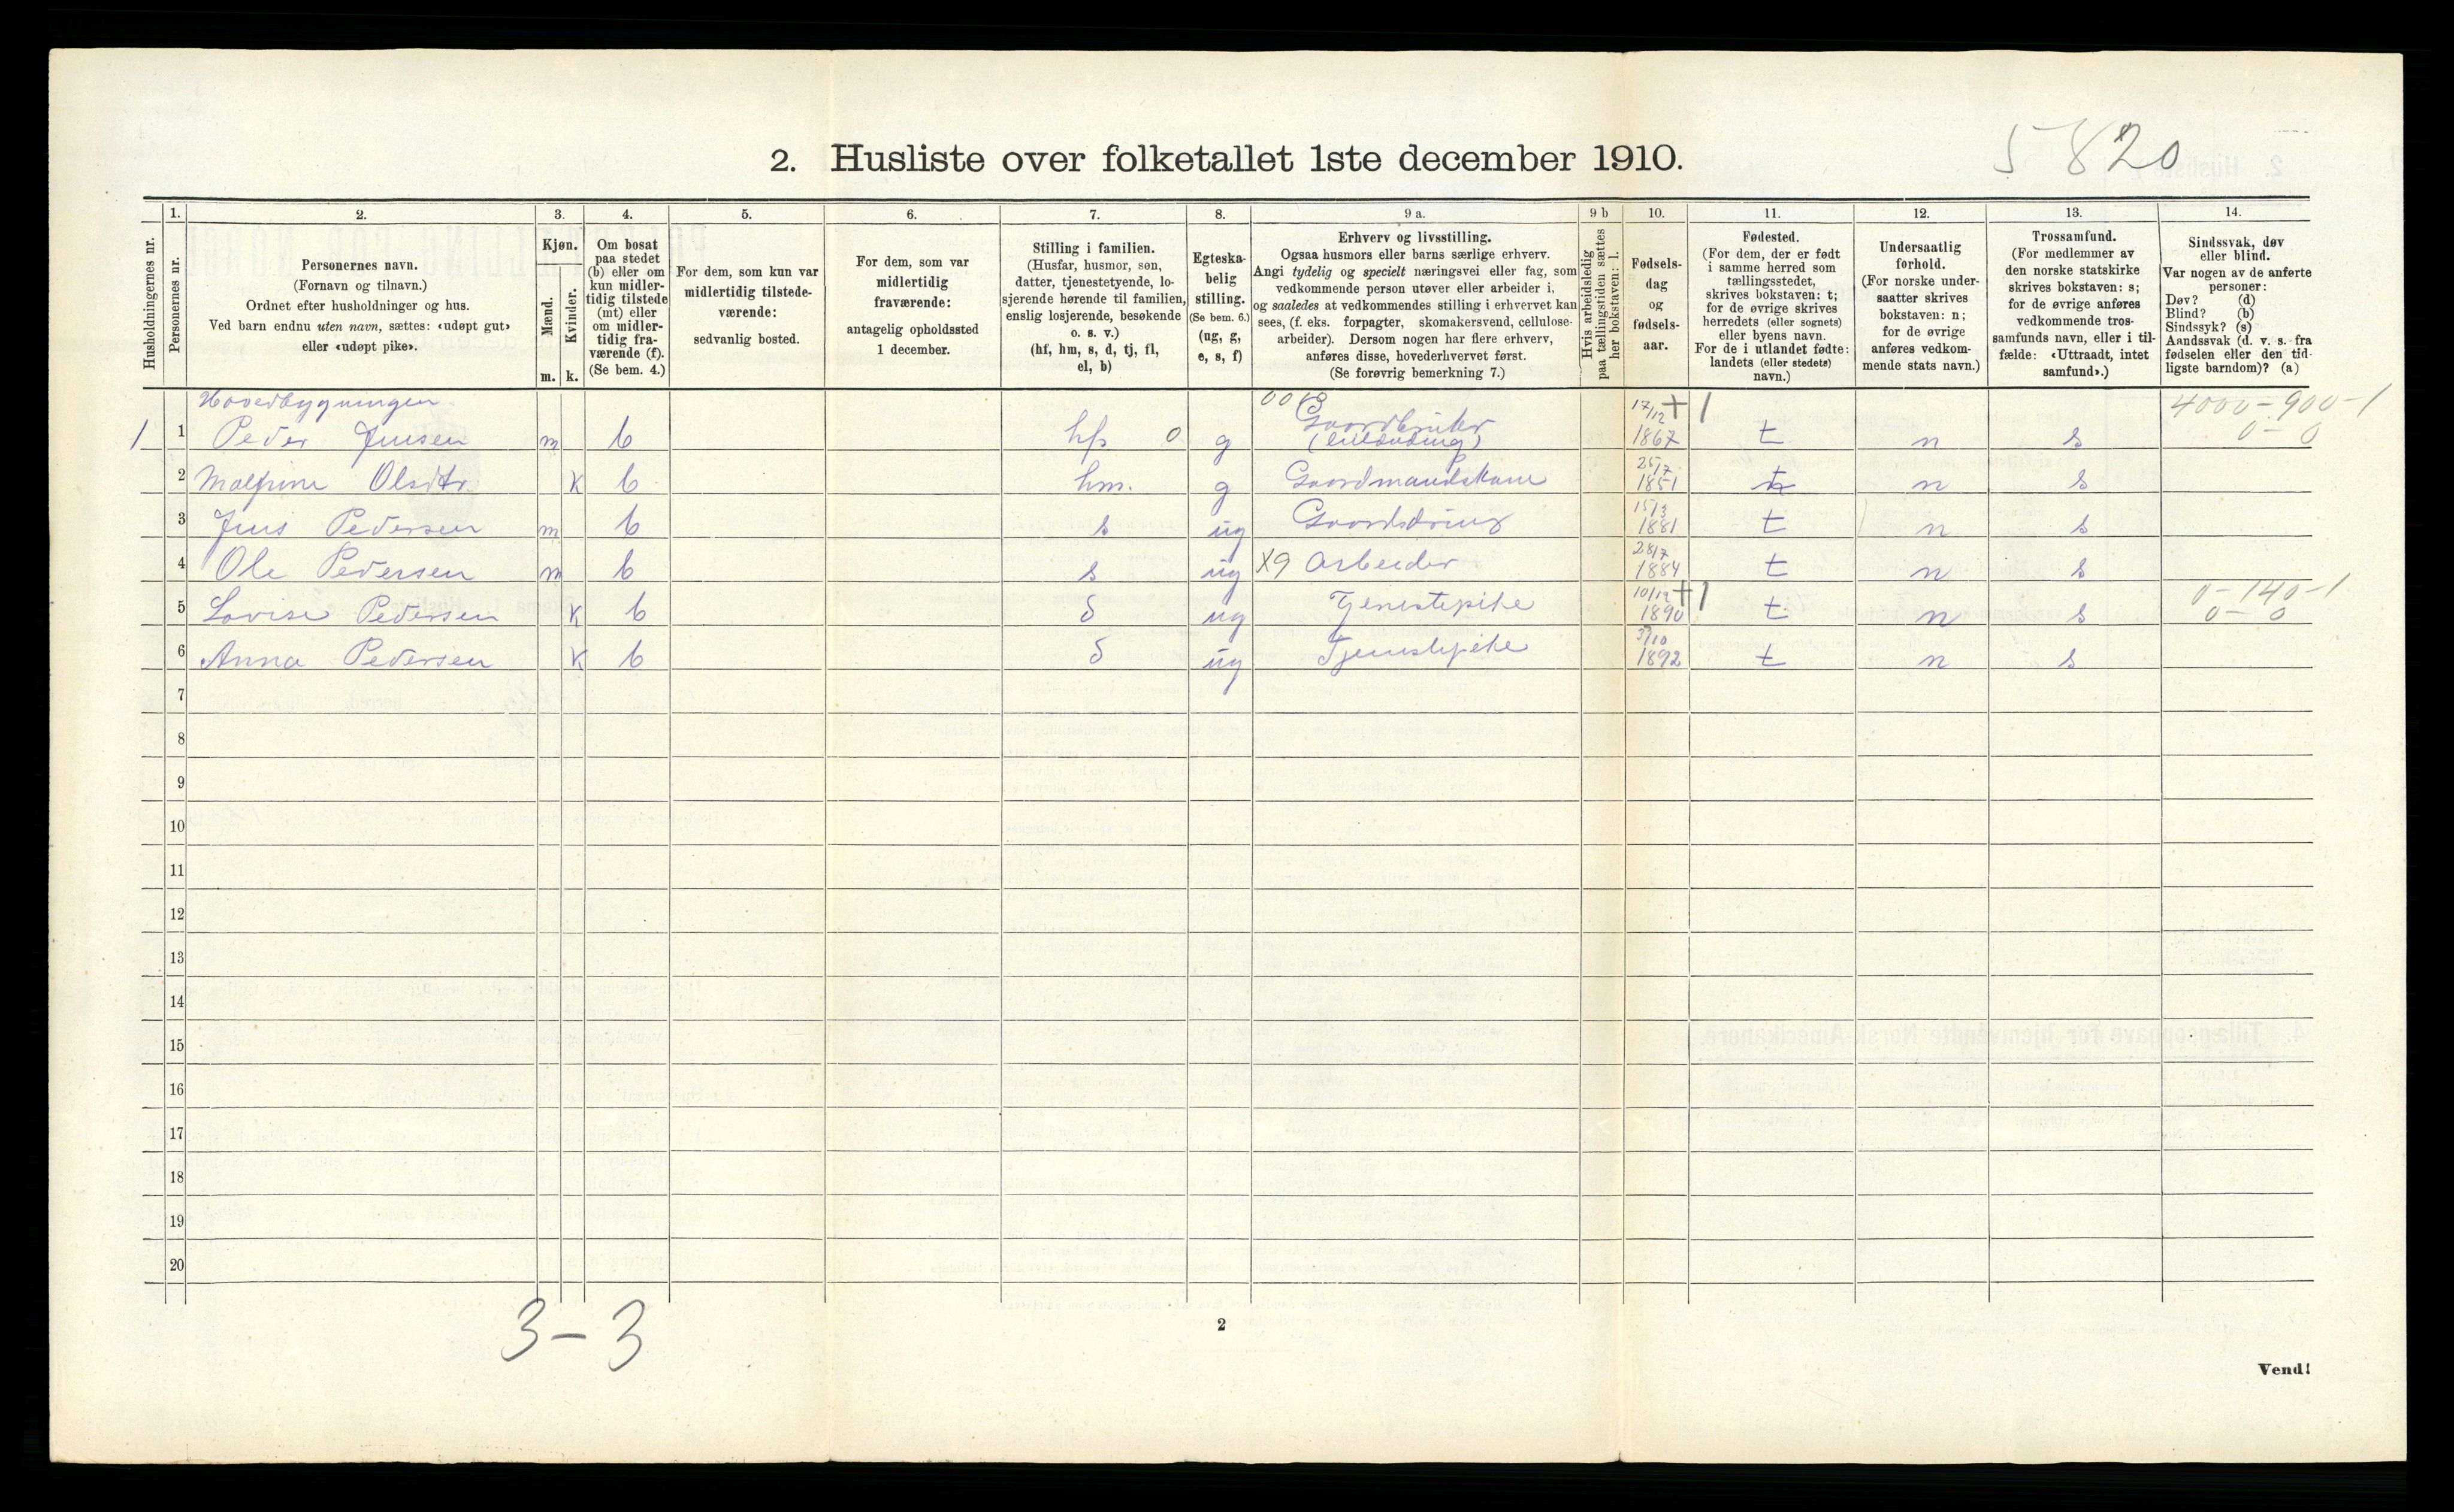 5820
2. Husliste over folketallet 1ste december 1910.
Husholdningernes nr.
1. Personernes nr.
2. Personernes navn.
(Fornavn og tilnavn.)
Ordnet efter husholdninger og hus.
Ved barn endnu uten navn, sættes: «udøpt gut»
eller «udøpt pike».
3. Kjøn.
Mænd. m.
Kvinder. k.
4. Om bosat
paa stedet
(b) eller om
kun midler-
tidig tilstede
(mt) eller
om midler-
tidig fra-
værende (f).
(Se bem. 4.)
5. For dem, som kun var
midlertidig tilstede-
værende:
sedvanlig bosted.
6. For dem, som var
midlertidig
fraværende:
antagelig opholdssted
1 december.
7. Stilling i familien.
(Husfar, husmor, søn,
datter, tjenestetyende, lo-
sjerende hørende til familien,
enslig losjerende, besøkende
o. s. v.)
(hf, hm, s, d, tj, fl,
el, b)
8. Egteska-
belig
stilling.
(Se bem. 6.)
(ug, g,
e, s, f)
9 a. Erhverv og livsstilling.
Ogsaa husmors eller barns særlige erhverv.
Angi tydelig og specielt næringsvei eller fag, som
vedkommende person utøver eller arbeider i,
og saaledes at vedkommendes stilling i erhvervet kan
sees, (f. eks. forpagter, skomakersvend, cellulose-
arbeider). Dersom nogen har flere erhverv,
anføres disse, hovederhvervet først.
(Se forøvrig bemerkning 7.)
9 b Hvis arbeidsledig
paa tællingstiden sættes
her bokstaven: l.
10. Fødsels-
dag
og
fødsels-
aar.
11. Fødested.
(For dem, der er født
i samme herred som
tællingsstedet,
skrives bokstaven: t;
for de øvrige skrives
herredets (eller sognets)
eller byens navn.
For de i utlandet fødte:
landets (eller stedets)
navn.)
12. Undersaatlig
forhold.
(For norske under-
saatter skrives
bokstaven: n;
for de øvrige
anføres vedkom-
mende stats navn.)
13. Trossamfund.
(For medlemmer av
den norske statskirke
skrives bokstaven: s;
for de øvrige anføres
vedkommende tros-
samfunds navn, eller i til-
fælde: «Uttraadt, intet
samfund».)
14. Sindssvak, døv
eller blind.
Var nogen av de anførte
personer:
Døv? (d)
Blind? (b)
Sindssyk? (s)
Aandssvak (d. v. s. fra
fødselen eller den tid-
ligste barndom)? (a)
Hovedbygningen 17/12 + 1 4000-900-1
1 1 Peder Jensen m b hf 0 g Gaardbruker 1867 t n s 0-0
25/7
2 Olsdtr. k b hm. g Gaardmandskone 1851 t n s
15/3
3 Jens Pedersen m b s ug Gaardsdreng 1881 t n s
28/7
4 Ole Pedersen m b s ug X9 Arbeider 1884 t n s
10/12 + 1 0-140-1
5 Lovise Pedersen k b d ug Tjenestepike 1890 t n s 0-0
6 Anna Pedersen k b d ug Tjenestepike 1892 t n s
7
8
9
10
11
12
13
14
15
16
17
18
19
20
3-3
2
Vend!